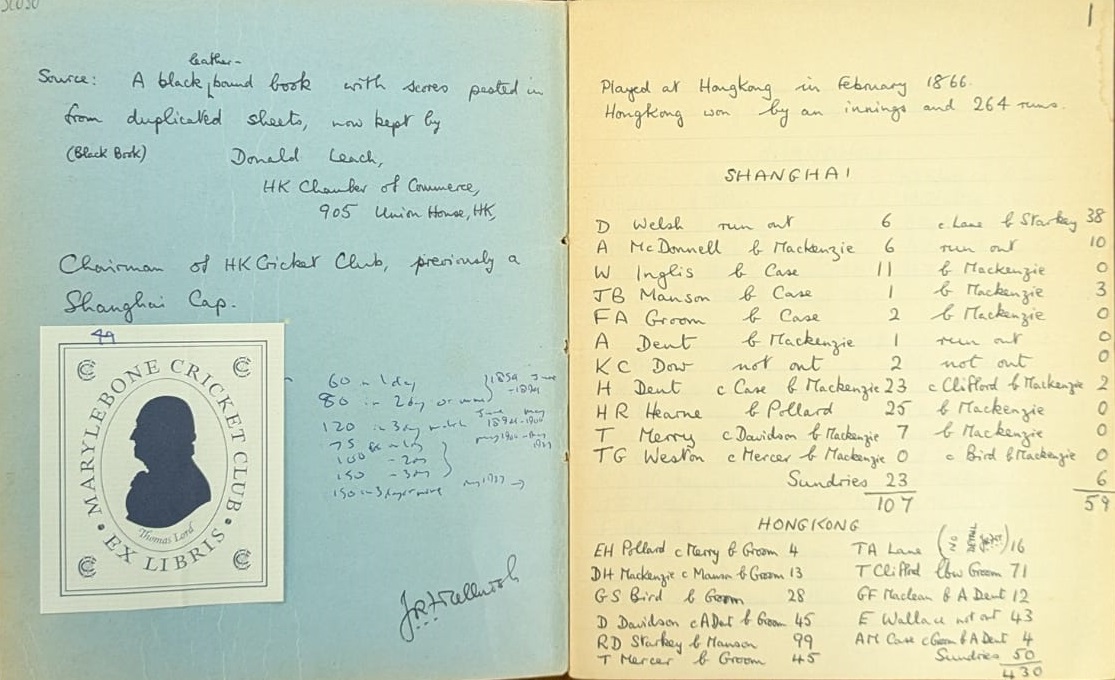 leather-
Source: A black bound book with scores pasted in
from duplicated sheets, now kept by
(Black Book) Donald Leach,
HK Chamber of Commerce,
905 Union House, HK,
Chairman of HK Cricket Club, previously a
Shanghai Cap.
MARYLEBONE CRICKET CLUB
EX LIBRIS
Thomas Lord
60 in 1 day
80 in 2 day
120 in 3 day match
75
100 - 2
150 - 3
150 in 3 days
1
Played at Hongkong in February 1866.
Hongkong won by an innings and 264 runs.
SHANGHAI
D Welsh run out 6 c. Lane b Starkey 38
A McDonnell b Mackenzie 6 run out 10
W Inglis b Case 11 b Mackenzie 0
JB Manson b Case 1 b Mackenzie 3
FA Groom b Case 2 b Mackenzie 0
A Dent b Mackenzie 1 run out 0
KC Dow not out 2 not out 0
H Dent c Case b Mackenzie 23 c Clifford b Mackenzie 2
HR Hearne b Pollard 25 b Mackenzie 0
T Merry c Davidson b Mackenzie 7 b Mackenzie 0
TG Weston c Mercer b Mackenzie 0 c Bird b Mackenzie 0
Sundries 23 6
107 59
HONGKONG
EH Pollard c Merry b Groom 4 TA Lane (NO DETAIL) 16
DH Mackenzie c Manson b Groom 13 T Clifford lbw Groom 71
GS Bird b Groom 28 GF Maclean b A Dent 12
D Davidson c A Dent b Groom 45 E Wallace not out 43
RD Starkey b Manson 99 AM Case c Groom b A Dent 4
T Mercer b Groom 45 Sundries 50
430